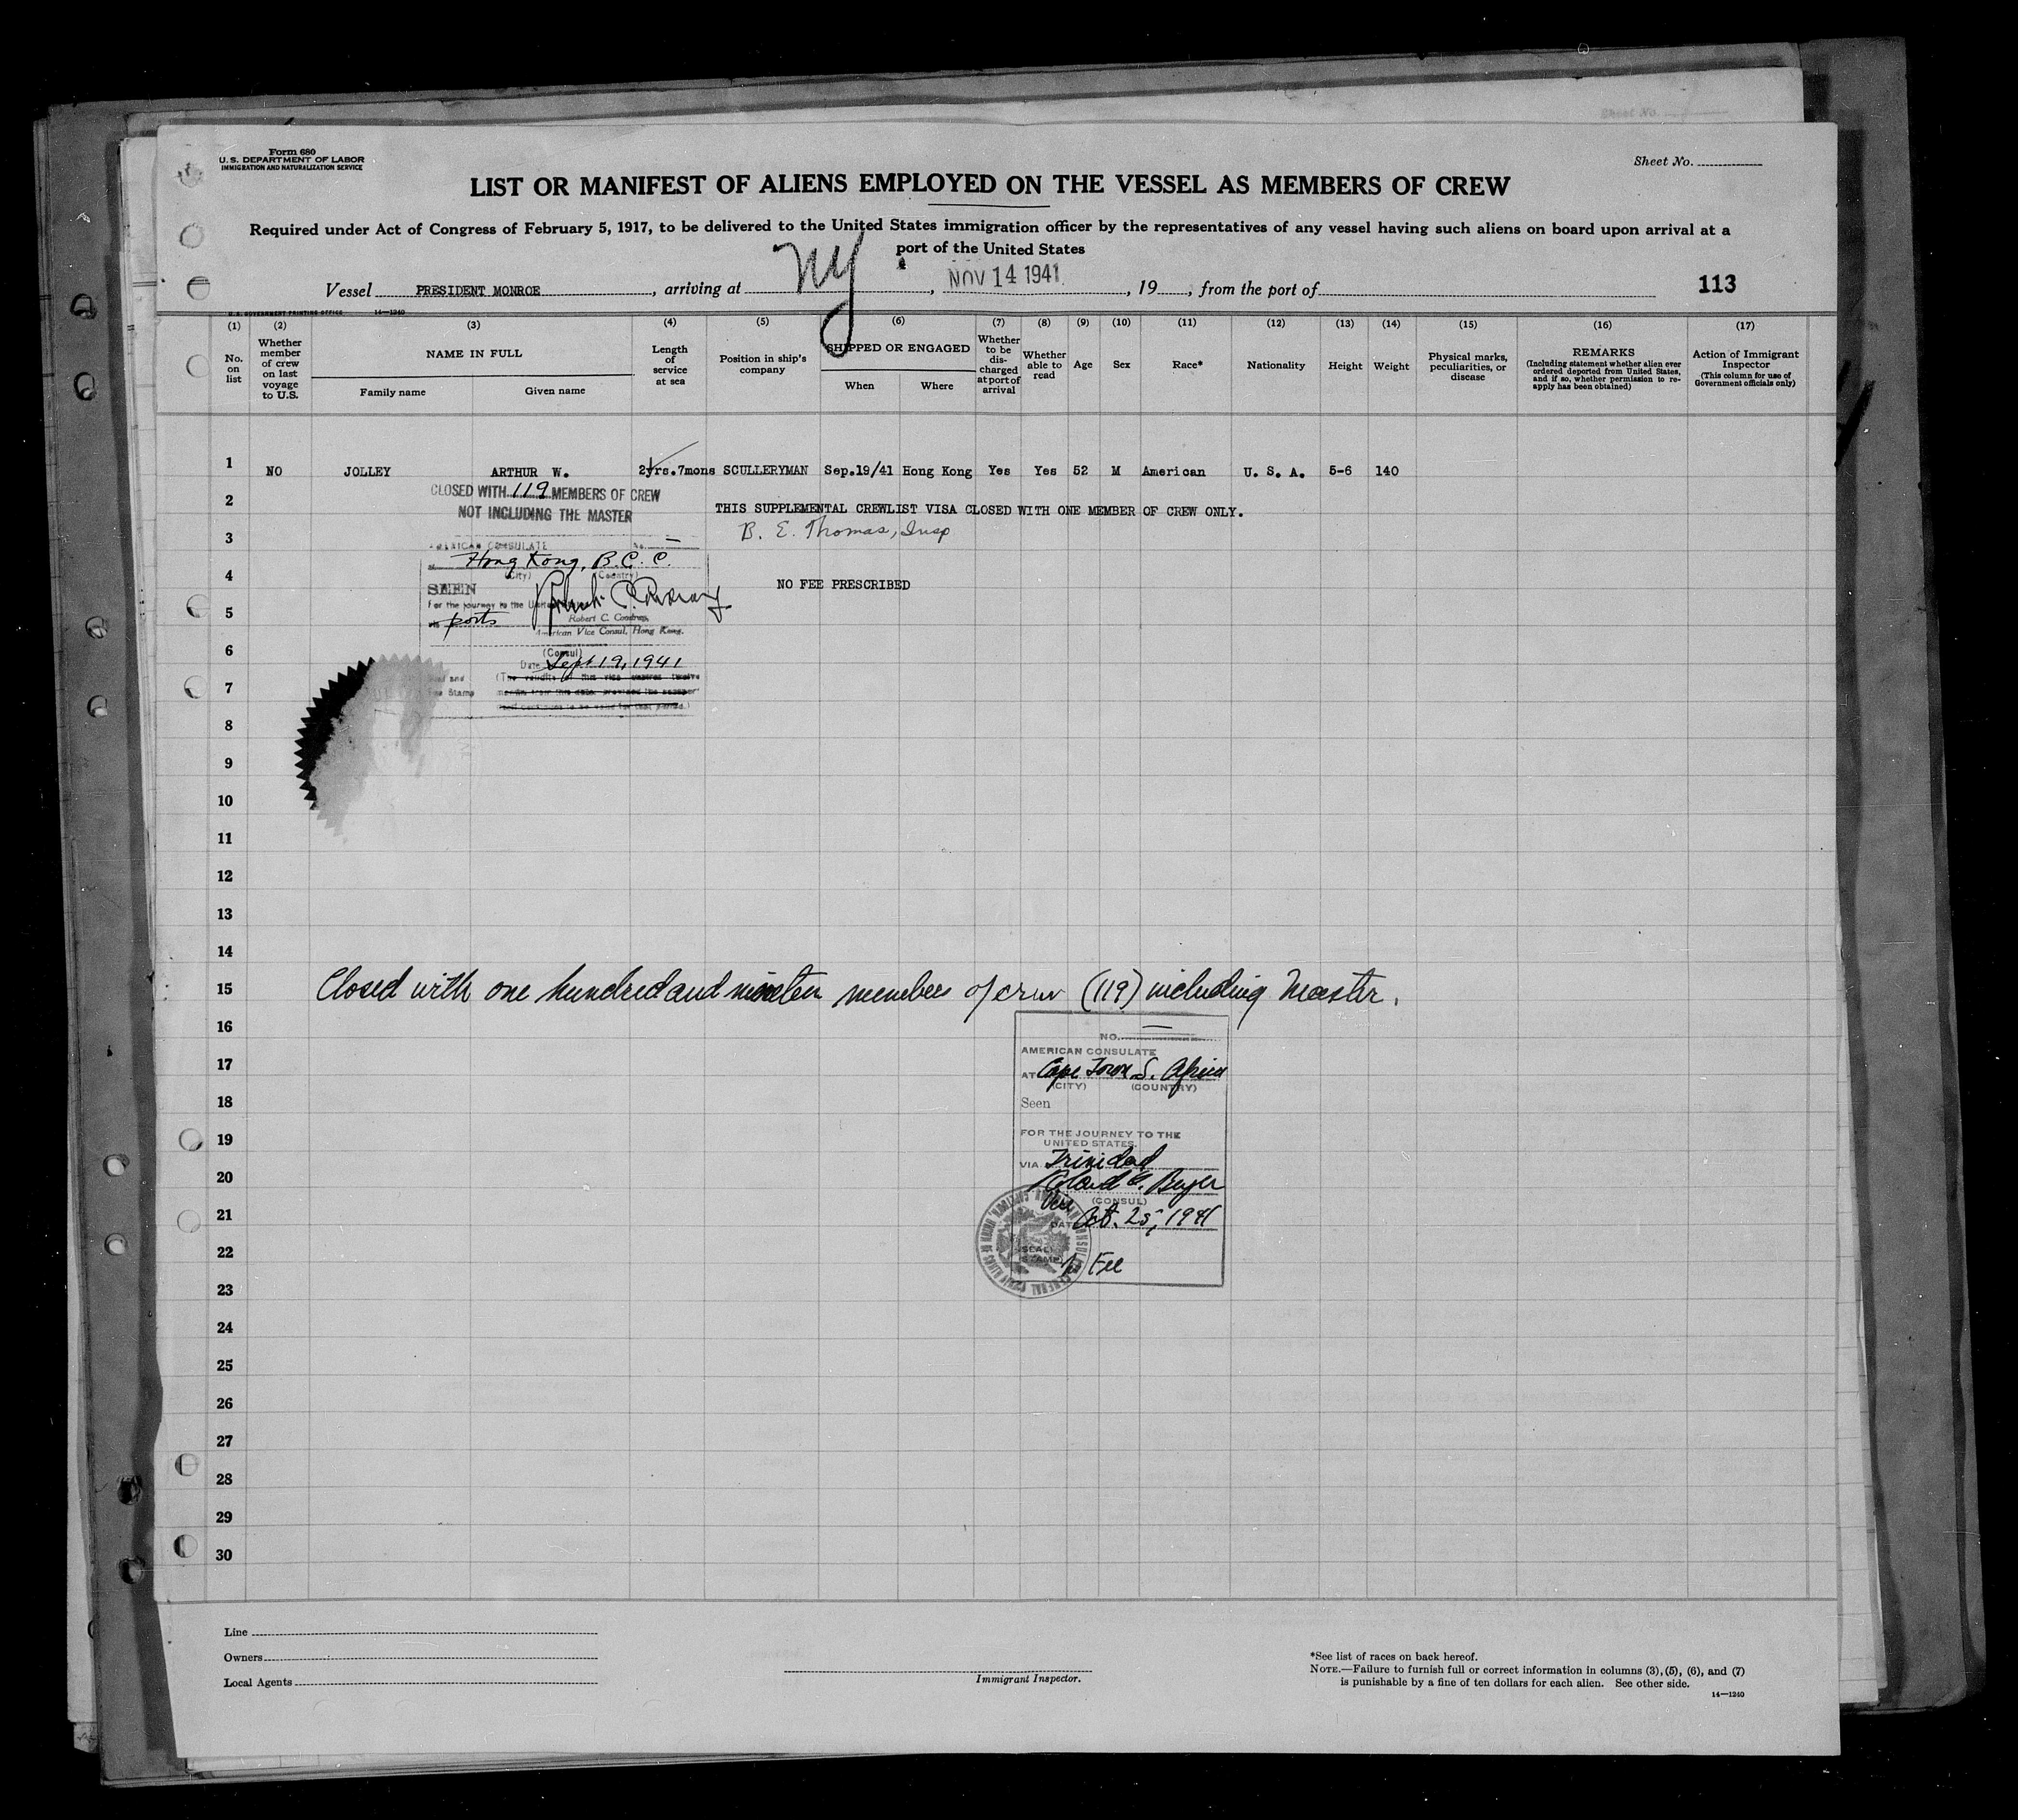 Sheet No.
Form 680
U.S. DEPARTMENT OF LABOR
IMMIGRATION AND NATURALIZATION SERVICE
Sheet No.
LIST OR MANIFEST OF ALIENS EMPLOYED ON THE VESSEL AS MEMBERS OF CREW
Required under Act of Congress of February 5, 1917, to be delivered to the United States immigration officer by the representatives of any vessel having such aliens on board upon arrival at a
port of the United States
Vessel PRESIDENT MONROE, arriving at NY, NOV 14 1941, 19, from the port of 113
U.S. GOVERNMENT PRINTING OFFICE 14—1240
(1) (2) (3) (4) (5) (6) (7) (8) (9) (10) (11) (12) (13) (14) (15) (16) (17)
No. on list
Whether member of crew on last voyage to U.S.
NAME IN FULL
Family name Given name
Length of service at sea
Position in ship's company
SHIPPED OR ENGAGED
When Where
Whether to be discharged at port of arrival
Whether able to read
Age
Sex
Race*
Nationality
Height
Weight
Physical marks, peculiarities, or disease
REMARKS
(Including statement whether alien ever ordered deported from United States, and if so, whether permission to reapply has been obtained)
Action of Immigrant Inspector
(This column for use of Government officials only)
1 NO JOLLEY ARTHUR W. 2yrs.7mons SCULLERYMAN Sep.19/41 Hong Kong Yes Yes 52 M American U. S. A. 5-6 140
CLOSED WITH 119 MEMBERS OF CREW
NOT INCLUDING THE MASTER
2 THIS SUPPLEMENTAL CREWLIST VISA CLOSED WITH ONE MEMBER OF CREW ONLY.
3 B. E. Thomas, Insp
AMERICAN CONSULATE No. —
Hong Kong, B.C.C.
(City) (Country)
4 NO FEE PRESCRIBED
SEEN
For the journey to the United
5 via ports
Robert C.
American Vice Consul, Hong Kong.
6 (Consul)
Date Sept 19, 1941
7 (The validity of this visa expires twelve
months from this date provided the
8
9
10
11
12
13
14
15 Closed with one hundred and nineteen members of crew (119) including Master.
16 NO. —
AMERICAN CONSULATE
17 AT Cape Town S. Africa
(CITY) (COUNTRY)
18 Seen
19 FOR THE JOURNEY TO THE
UNITED STATES
VIA Trinidad
20 Roland C. Beyer
Vice (CONSUL)
21 DATE Oct. 25, 1941
22 (SEAL)
STAMP No Fee
23
24
25
26
27
28
29
30
Line
Owners
Local Agents
Immigrant Inspector.
*See list of races on back hereof.
NOTE.—Failure to furnish full or correct information in columns (3), (5), (6), and (7)
is punishable by a fine of ten dollars for each alien. See other side.
14—1240